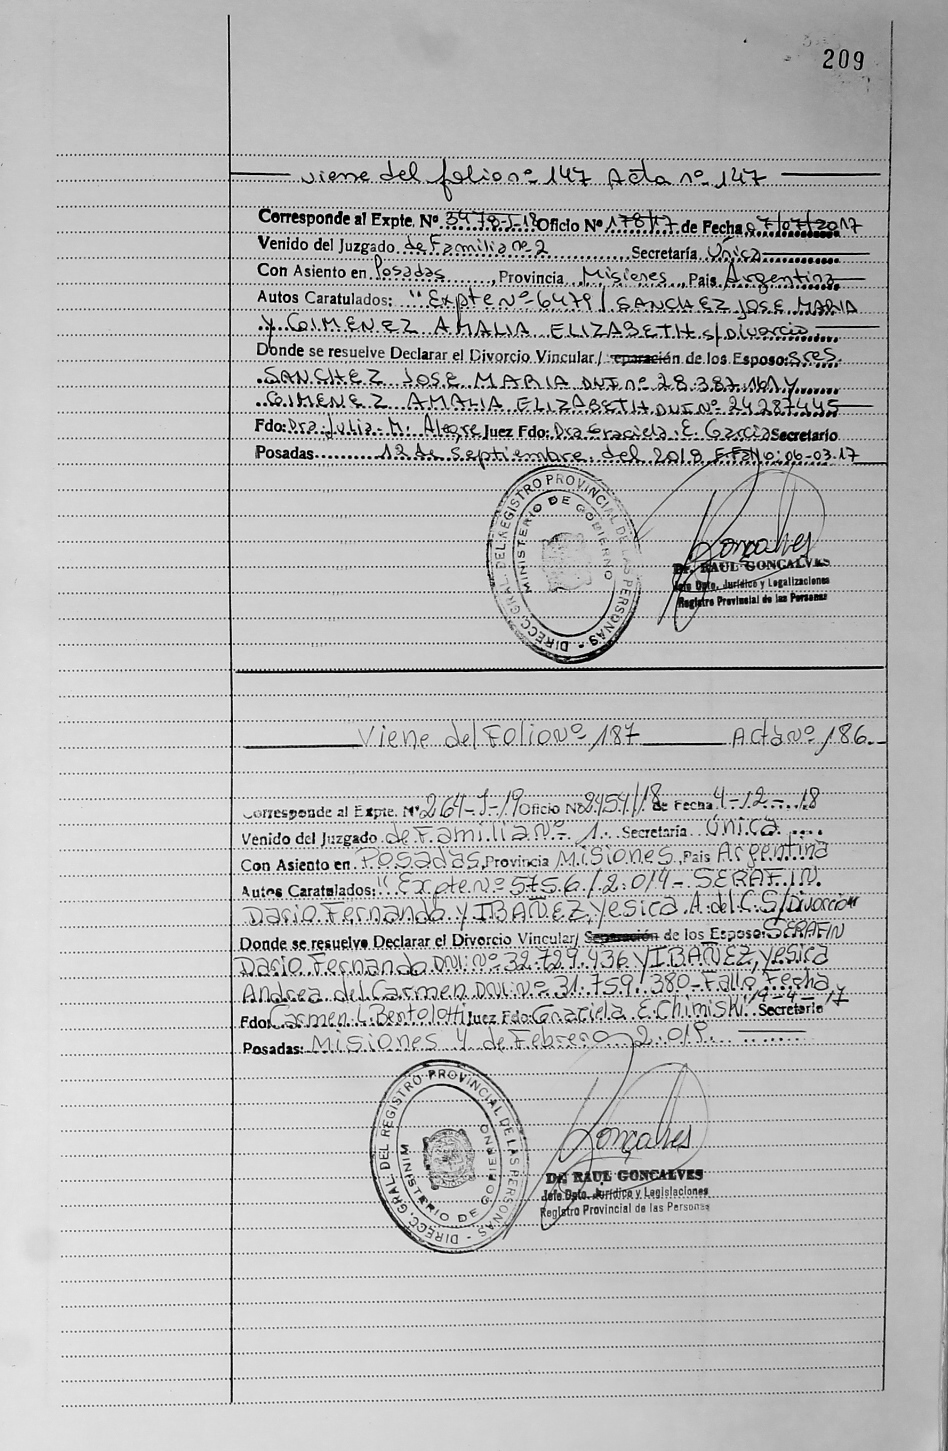 209
Viene del folio nº 147 Acta nº 147
Corresponde al Expte. Nº 3978-I-18 Oficio Nº 178/17 de Fecha 07/07/2017
Venido del Juzgado de Familia nº 2 Secretaría Única
Con Asiento en Posadas, Provincia Misiones, Pais Argentina
Autos Caratulados: "Expte Nº 6479/ SANCHEZ JOSE MARIA
Y GIMENEZ AMALIA ELIZABETH s/Divorcio
Donde se resuelve Declarar el Divorcio Vincular/ eparación de los Esposo: Sres.
SANCHEZ JOSE MARIA DNI nº 28.387.161 Y
GIMENEZ AMALIA ELIZABETH DNI Nº 24287445
Fdo: Dra Julia M. Alegre Juez Fdo: Dra Graciela E. Garcia Secretario
Posadas 12 de Septiembre del 2018 F.Fallo: 06-03-17
DIRECC. GRAL. DEL REGISTRO PROVINCIAL DE LAS PERSONAS -
MINISTERIO DE GOBIERNO
Goncalves
Dr. RAUL GONCALVES
Jefe Dpto. Jurídico y Legalizaciones
Registro Provincial de las Personas
Viene del Folio Nº 187 Acta Nº 186.-
Corresponde al Expte. Nº 264-J-19 Oficio Nº 2454/18 de Fecha 4-12-18
Venido del Juzgado de Familia Nº 1. Secretaría Única
Con Asiento en Posadas, Provincia Misiones, Pais Argentina
Autos Caratulados: "Expte Nº 5756/2.014- SERAFIN
Dario Fernando y IBAÑEZ, Yesica A. del C. S/Divorcio"
Donde se resuelve Declarar el Divorcio Vincular/ Separación de los Esposo: SERAFIN
Dario Fernando DNI: Nº 32.729.436 Y IBAÑEZ, Yesica
Andrea del Carmen DNI: Nº 31.759.380- Fallo Fecha
19-4-17
Fdo: Carmen L. Bertolotti Juez Fdo: Graciela E. Chimiski Secretario
Posadas: Misiones 4 de Febrero 2.019.
DIRECC. GRAL. DEL REGISTRO PROVINCIAL DE LAS PERSONAS -
MINISTERIO DE GOBIERNO
Goncalves
Dr. RAUL GONCALVES
Jefe Dpto. Jurídico y Legislaciones
Registro Provincial de las Personas